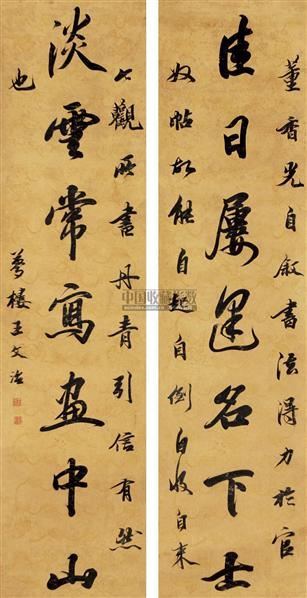 董香光自叙書法得力於官
佳日屢逢名下士
奴帖故能自起自倒自收自束
觀所書丹青引信有然
淡雲常寫畫中山
也
夢樓王文治
中国收藏指数